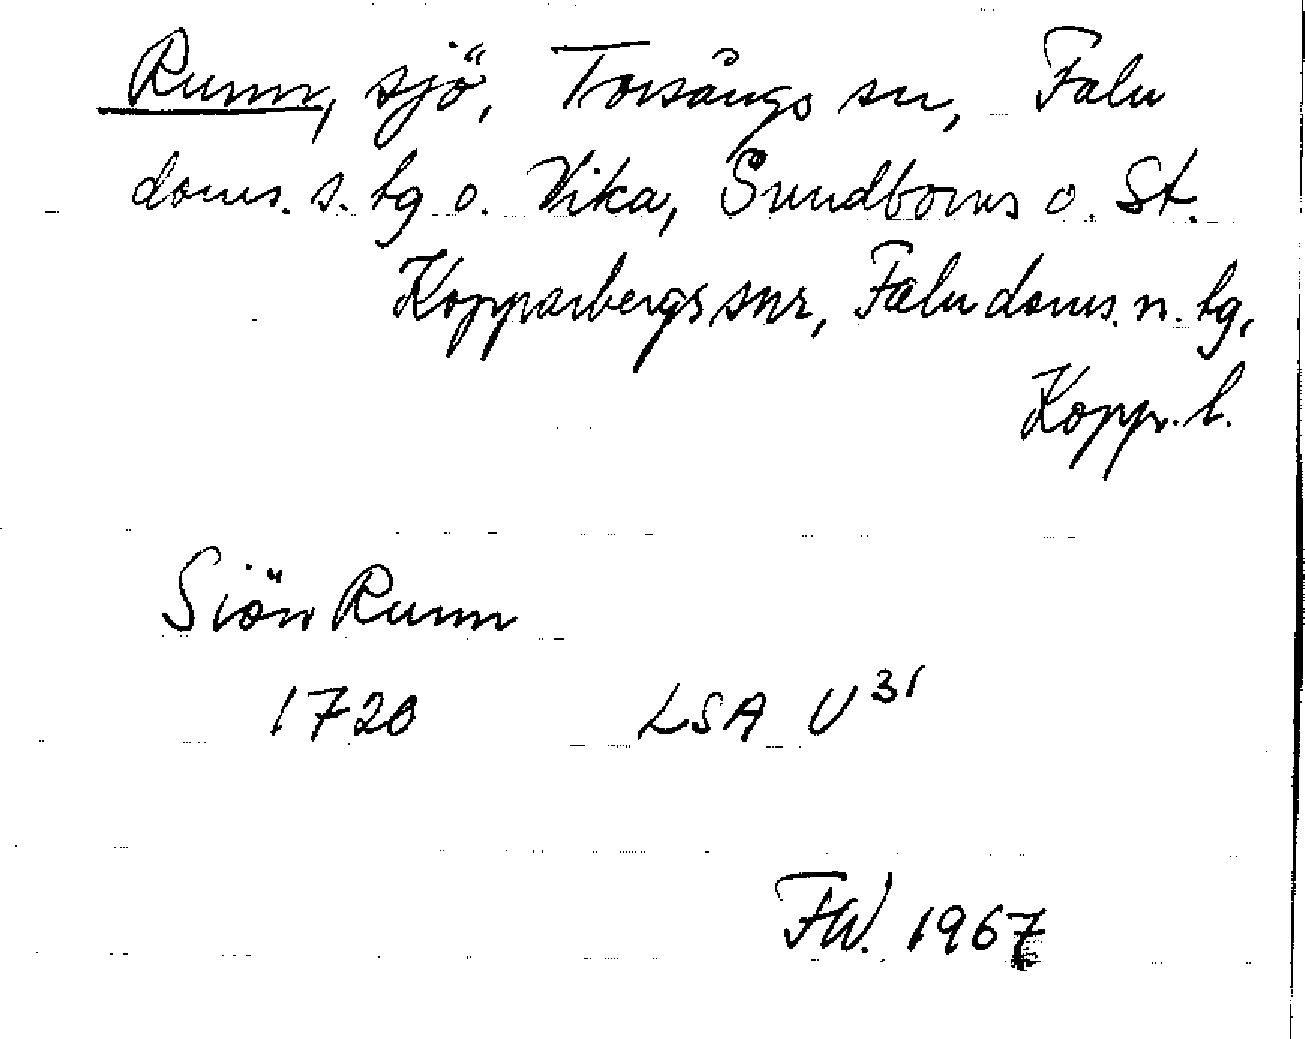 Runn, sjö, Torsångs sn, Falu
doms. s. tg o. Vika, Sundborns o. St.
Kopparbergs snr, Falu doms. n. tg,
Kopp. l.
Siön Runn
1720 LSA U31
FW. 1967